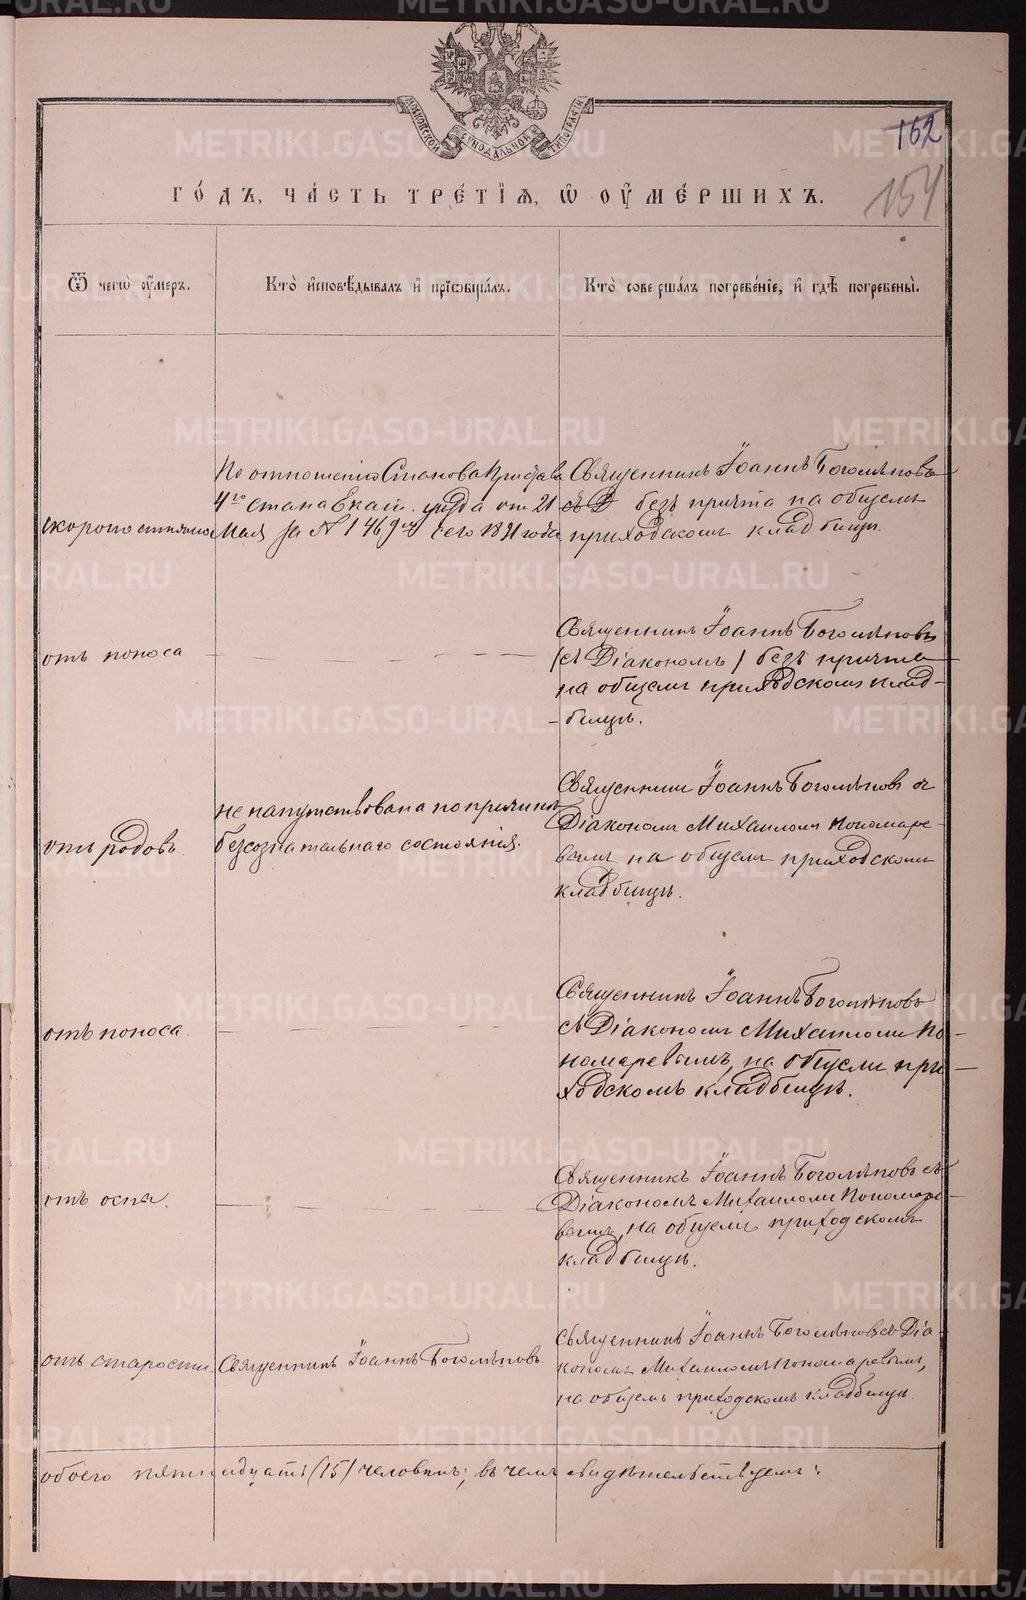 МОСКОВСКОЙ СѴНОДАЛЬНОЙ ТИПОГРАФІИ
162
154
ГО́ДЪ, ЧА́СТЬ ТРЕ́ТІѦ, Ѡ҆ ОУ҆МЕ́РШИХЪ.
Ѿ чегѡ̀ оу҆́меръ.
Кто̀ и҆сповѣ́дывалъ и҆ прїѡбща́лъ.
Кто̀ соверша́лъ погребе́нїе, и҆ гдѣ̀ погребены̀.
скоропостижно
По отношенію Станова Пристава
4го стана Екат. уѣзда от 21
Мая за № 1469м сего 1891 года
Священникъ Іоаннъ Боголѣповъ
съ Д без причта на общемъ
приходскомъ кладбищѣ.
отъ поноса
Священникъ Іоаннъ Боголѣповъ
(съ Діакономъ) безъ причта
на общемъ приходскомъ клад-
-бищѣ.
отъ родовъ
не напутствована по причинѣ
безсознательнаго состоянія.
Священник Іоаннъ Боголѣповъ съ
Діакономъ Михаиломъ Пономаре-
вымъ на общемъ приходскомъ
кладбищѣ.
отъ поноса.
Священникъ Іоаннъ Боголѣповъ
съ Діакономъ Михаиломъ По-
номаревымъ, на общемъ при-
ходскомъ кладбищѣ.
отъ оспы.
Священникъ Іоаннъ Боголѣповъ съ
Діакономъ Михаиломъ Пономаре-
вымъ, на общемъ приходскомъ
кладбищѣ.
отъ старости
Священникъ Іоаннъ Боголѣповъ
Священникъ Іоаннъ Боголѣповъ съ Діа-
кономъ Михаиломъ Пономаревымъ,
на общемъ приходскомъ кладбищѣ.
обоего пятнадцать (15) человѣкъ; въ чемъ свидѣтельствуемъ:
METRIKI.GASO-URAL.RU